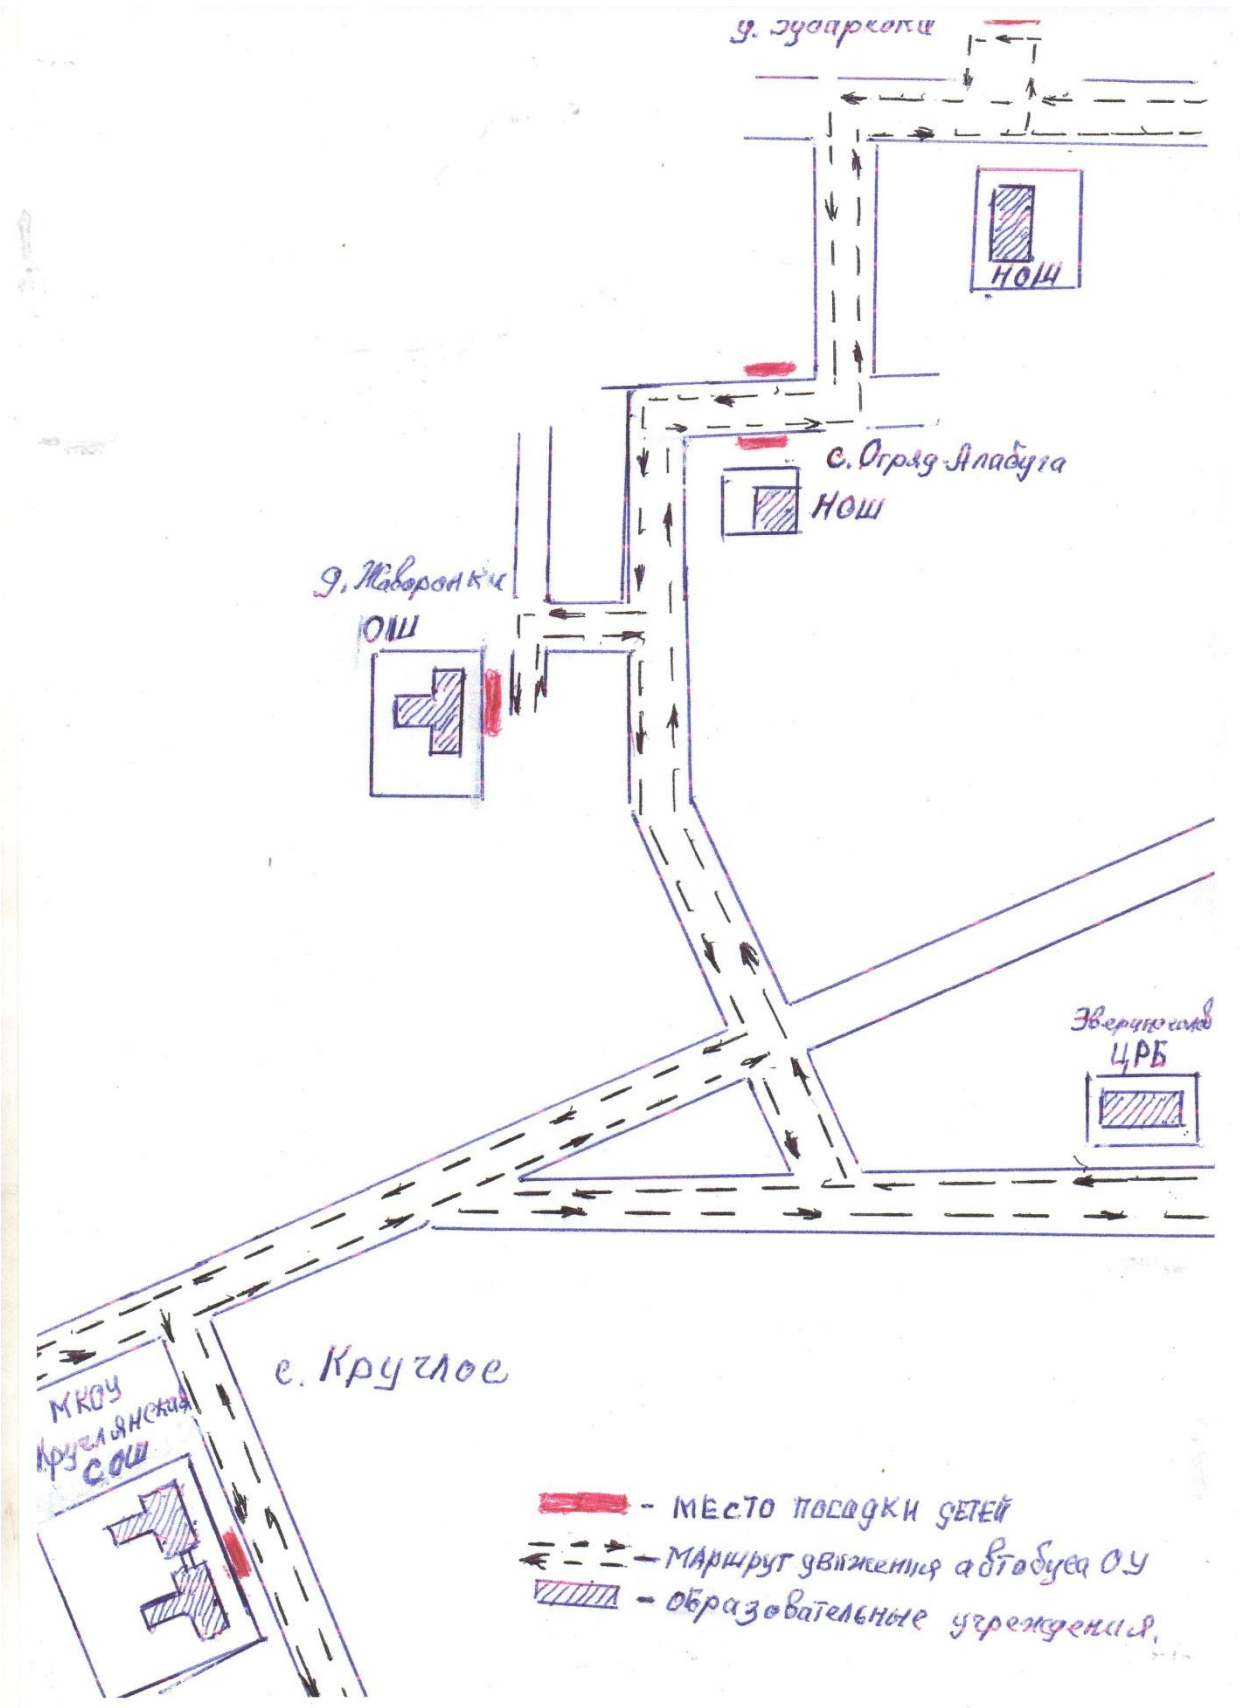 НОШ
с. Отряд-Алабуга
НОШ
д. Жаворонки
ОШ
ЦРБ
с. Круглое
МКОУ
Круглянская
СОШ
- МЕСТО ПОСАДКИ ДЕТЕЙ
- МАРШРУТ движения автобуса ОУ
- ОБРАЗОВАТЕЛЬНЫЕ учреждения.